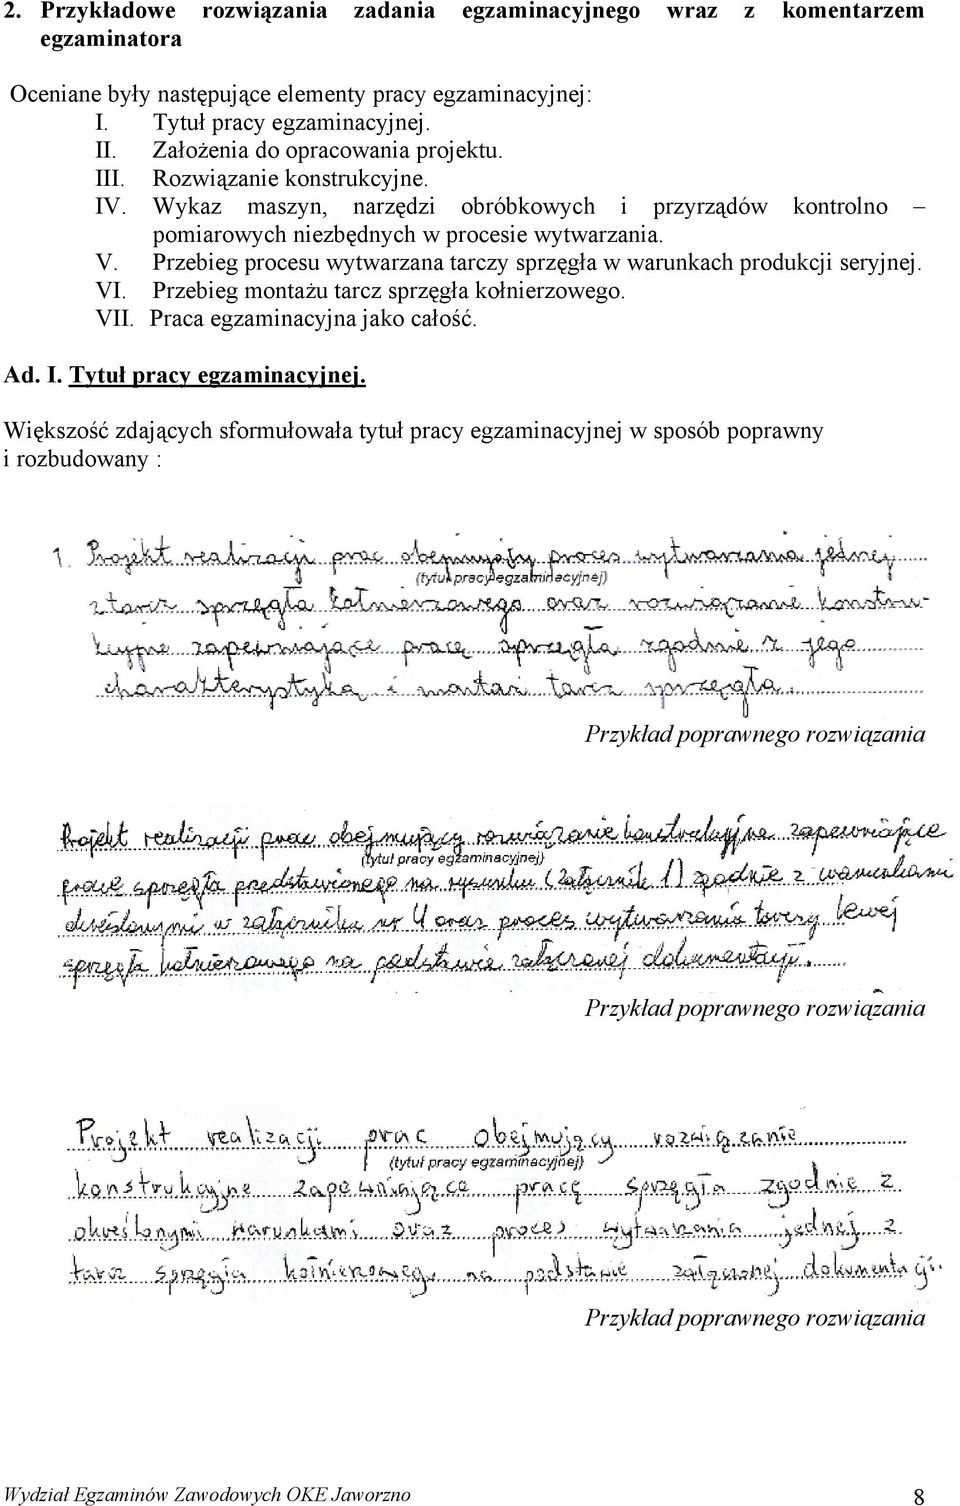 2. Przykładowe rozwiązania zadania egzaminacyjnego wraz z komentarzem
egzaminatora
Oceniane były następujące elementy pracy egzaminacyjnej:
I. Tytuł pracy egzaminacyjnej.
II. Założenia do opracowania projektu.
III. Rozwiązanie konstrukcyjne.
IV. Wykaz maszyn, narzędzi obróbkowych i przyrządów kontrolno –
pomiarowych niezbędnych w procesie wytwarzania.
V. Przebieg procesu wytwarzana tarczy sprzęgła w warunkach produkcji seryjnej.
VI. Przebieg montażu tarcz sprzęgła kołnierzowego.
VII. Praca egzaminacyjna jako całość.
Ad. I. Tytuł pracy egzaminacyjnej.
Większość zdających sformułowała tytuł pracy egzaminacyjnej w sposób poprawny
i rozbudowany :
1. Projekt realizacji prac obejmujący proces wytwarzania jednej
(tytuł pracy egzaminacyjnej)
z tarcz sprzęgła kołnierzowego oraz rozwiązanie konstru-
kcyjne zapewniające pracę sprzęgła zgodnie z jego
charakterystyką i montaż tarcz sprzęgła.
Przykład poprawnego rozwiązania
Projekt realizacji prac obejmujący rozwiązanie konstrukcyjne zapewniające
(tytuł pracy egzaminacyjnej)
pracę sprzęgła przedstawionego na rysunku (załącznik 1) zgodnie z warunkami
określonymi w załączniku nr 4 oraz proces wytwarzania tarczy lewej
sprzęgła kołnierzowego na podstawie załączonej dokumentacji.
Przykład poprawnego rozwiązania
Projekt realizacji prac obejmujący rozwiązanie
(tytuł pracy egzaminacyjnej)
konstrukcyjne zapewniające pracę sprzęgła zgodnie z
określonymi warunkami oraz proces wytwarzania jednej z
tarcz sprzęgła kołnierzowego na podstawie załączonej dokumentacji.
Przykład poprawnego rozwiązania
Wydział Egzaminów Zawodowych OKE Jaworzno 8